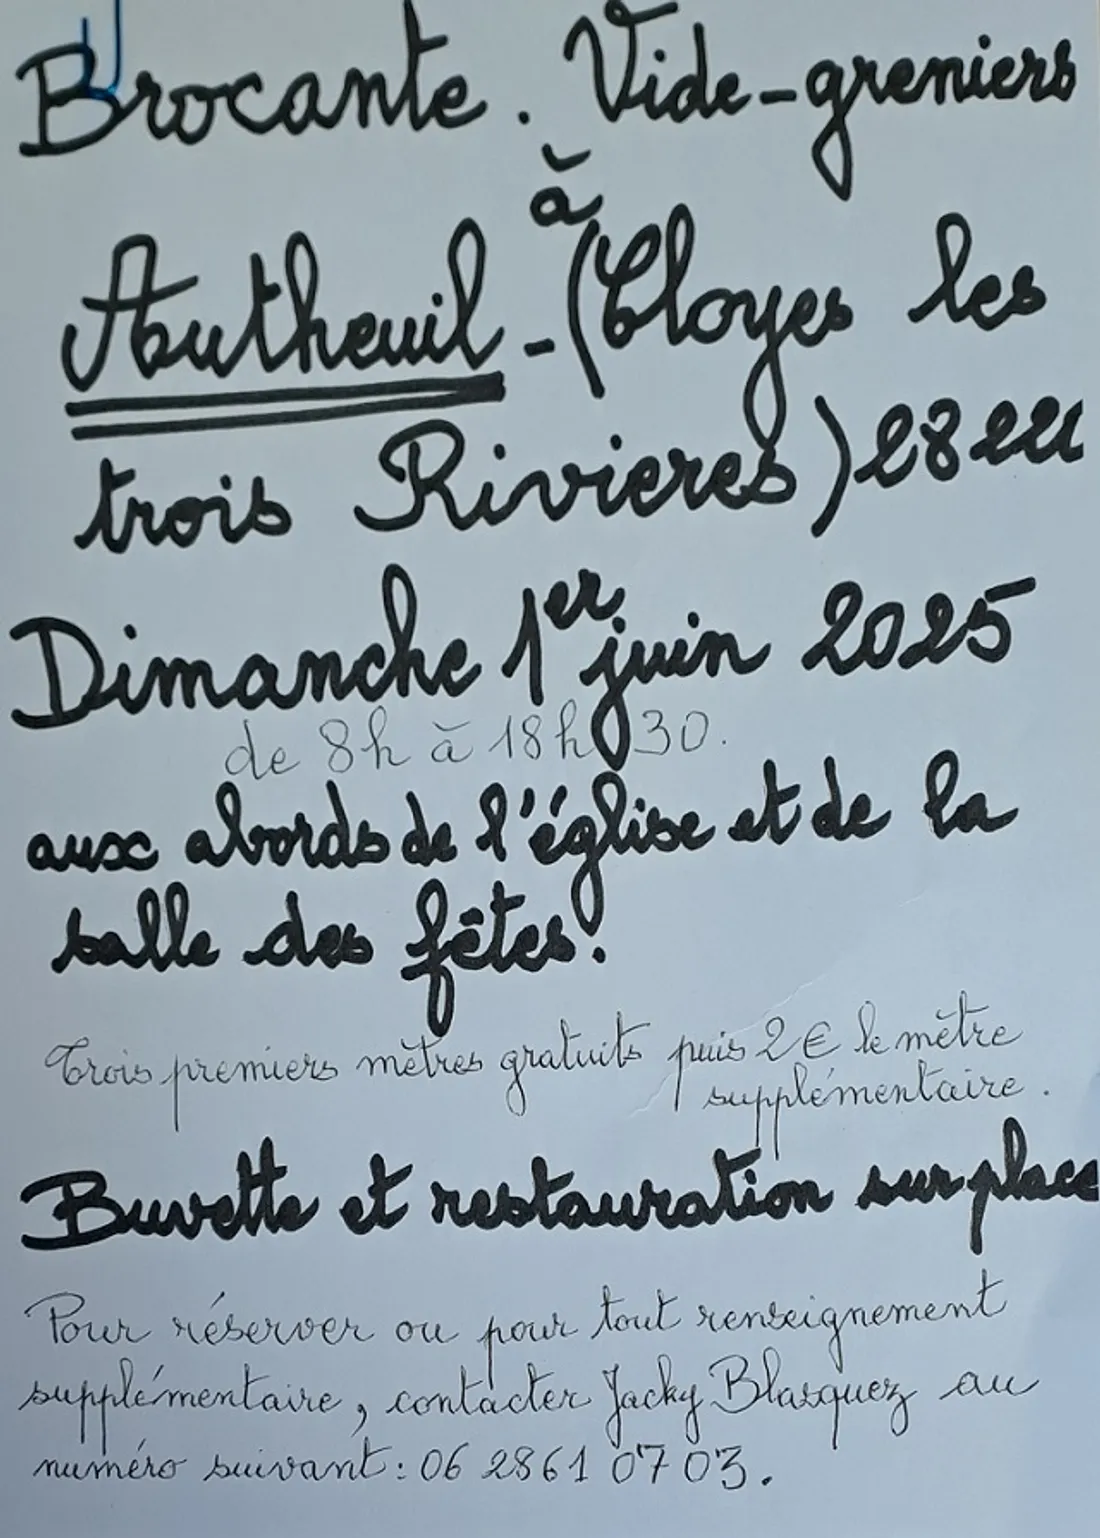 Brocante. Vide-greniers
à
Autheuil - (Cloyes les
trois Rivieres) 28220
Dimanche 1er juin 2025
de 8h à 18h30.
aux abords de l'église et de la
salle des fêtes.
Trois premiers mètres gratuits puis 2€ le mètre
supplémentaire.
Buvette et restauration sur place
Pour réserver ou pour tout renseignement
supplémentaire, contacter Jacky Blasquez au
numéro suivant : 06 28 61 07 03.